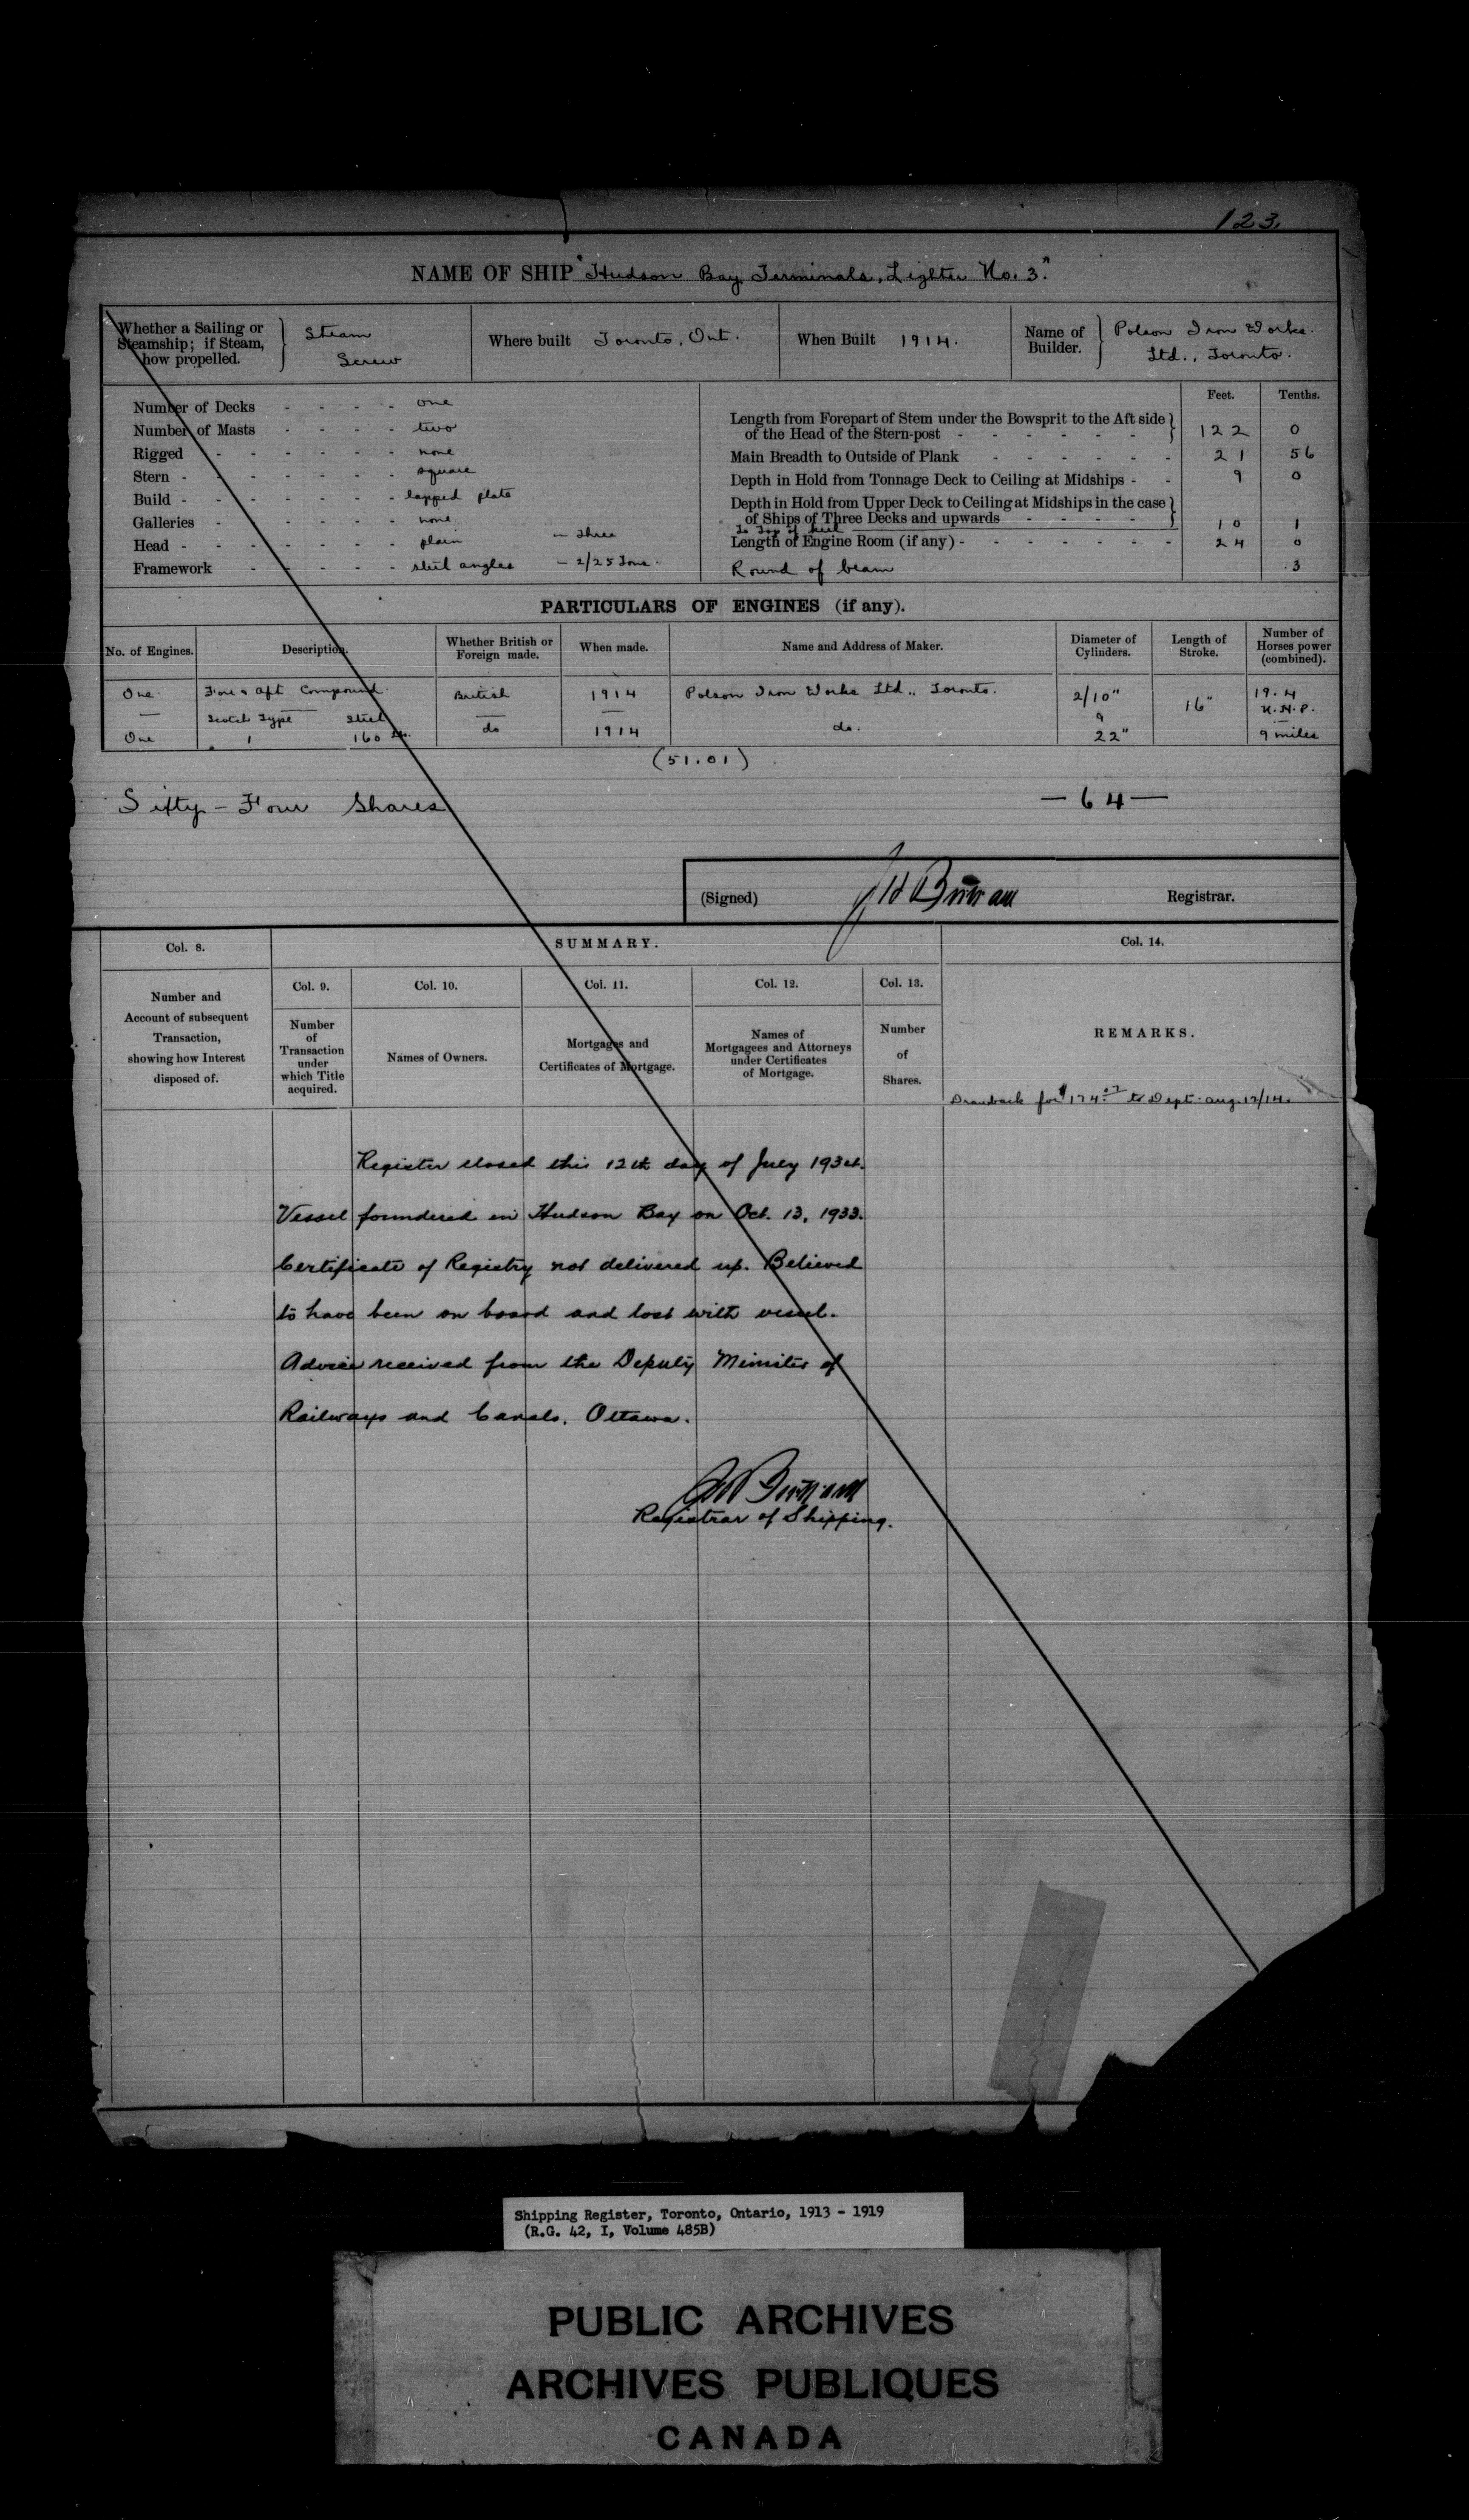 123.
NAME OF SHIP "Hudson Bay Terminals, Lighter No. 3."
Whether a Sailing or Steamship; if Steam, how propelled. } Steam Screw
Where built Toronto, Ont.
When Built 1914.
Name of Builder. } Polson Iron Works Ltd., Toronto.
Number of Decks - - - - one
Number of Masts - - - - two
Rigged - - - - - - none
Stern - - - - - - square
Build - - - - - - lapped plate
Galleries - - - - - none
Head - - - - - - plain — three
Framework - - - - - steel angles — 2/25 Tons.
Feet. Tenths.
Length from Forepart of Stem under the Bowsprit to the Aft side
of the Head of the Stern-post - - - - - - } 122 0
Main Breadth to Outside of Plank - - - - - - 21 56
Depth in Hold from Tonnage Deck to Ceiling at Midships - - 9 0
Depth in Hold from Upper Deck to Ceiling at Midships in the case
of Ships of Three Decks and upwards - - - - } 10 1
To Top of keel
Length of Engine Room (if any) - - - - - - - 24 0
Round of beam .3
PARTICULARS OF ENGINES (if any).
No. of Engines. Description. Whether British or Foreign made. When made. Name and Address of Maker. Diameter of Cylinders. Length of Stroke. Number of Horses power (combined).
One Fore & Aft Compound British 1914 Polson Iron Works Ltd., Toronto. 2/10" 16" 19.4 N.H.P.
Scotch Type Steel
One 1 160 do 1914 do. 22" 9 miles
(51.01)
Sixty-Four Shares —64—
(Signed) Registrar.
Col. 8. SUMMARY. Col. 14.
Number and Account of subsequent Transaction, showing how Interest disposed of.
Col. 9. Col. 10. Col. 11. Col. 12. Col. 13.
Number of Transaction under which Title acquired.
Names of Owners.
Mortgages and Certificates of Mortgage.
Names of Mortgagees and Attorneys under Certificates of Mortgage.
Number of Shares.
REMARKS.
Drawback for $174.07 to Dept. Aug. 12/14.
Register closed this 12th day of July 1934.
Vessel foundered in Hudson Bay on Oct. 13, 1933.
Certificate of Registry not delivered up. Believed
to have been on board and lost with vessel.
Advice received from the Deputy Minister of
Railways and Canals, Ottawa.
Registrar of Shipping.
Shipping Register, Toronto, Ontario, 1913 - 1919
(R.G. 42, I, Volume 485B)
PUBLIC ARCHIVES
ARCHIVES PUBLIQUES
CANADA